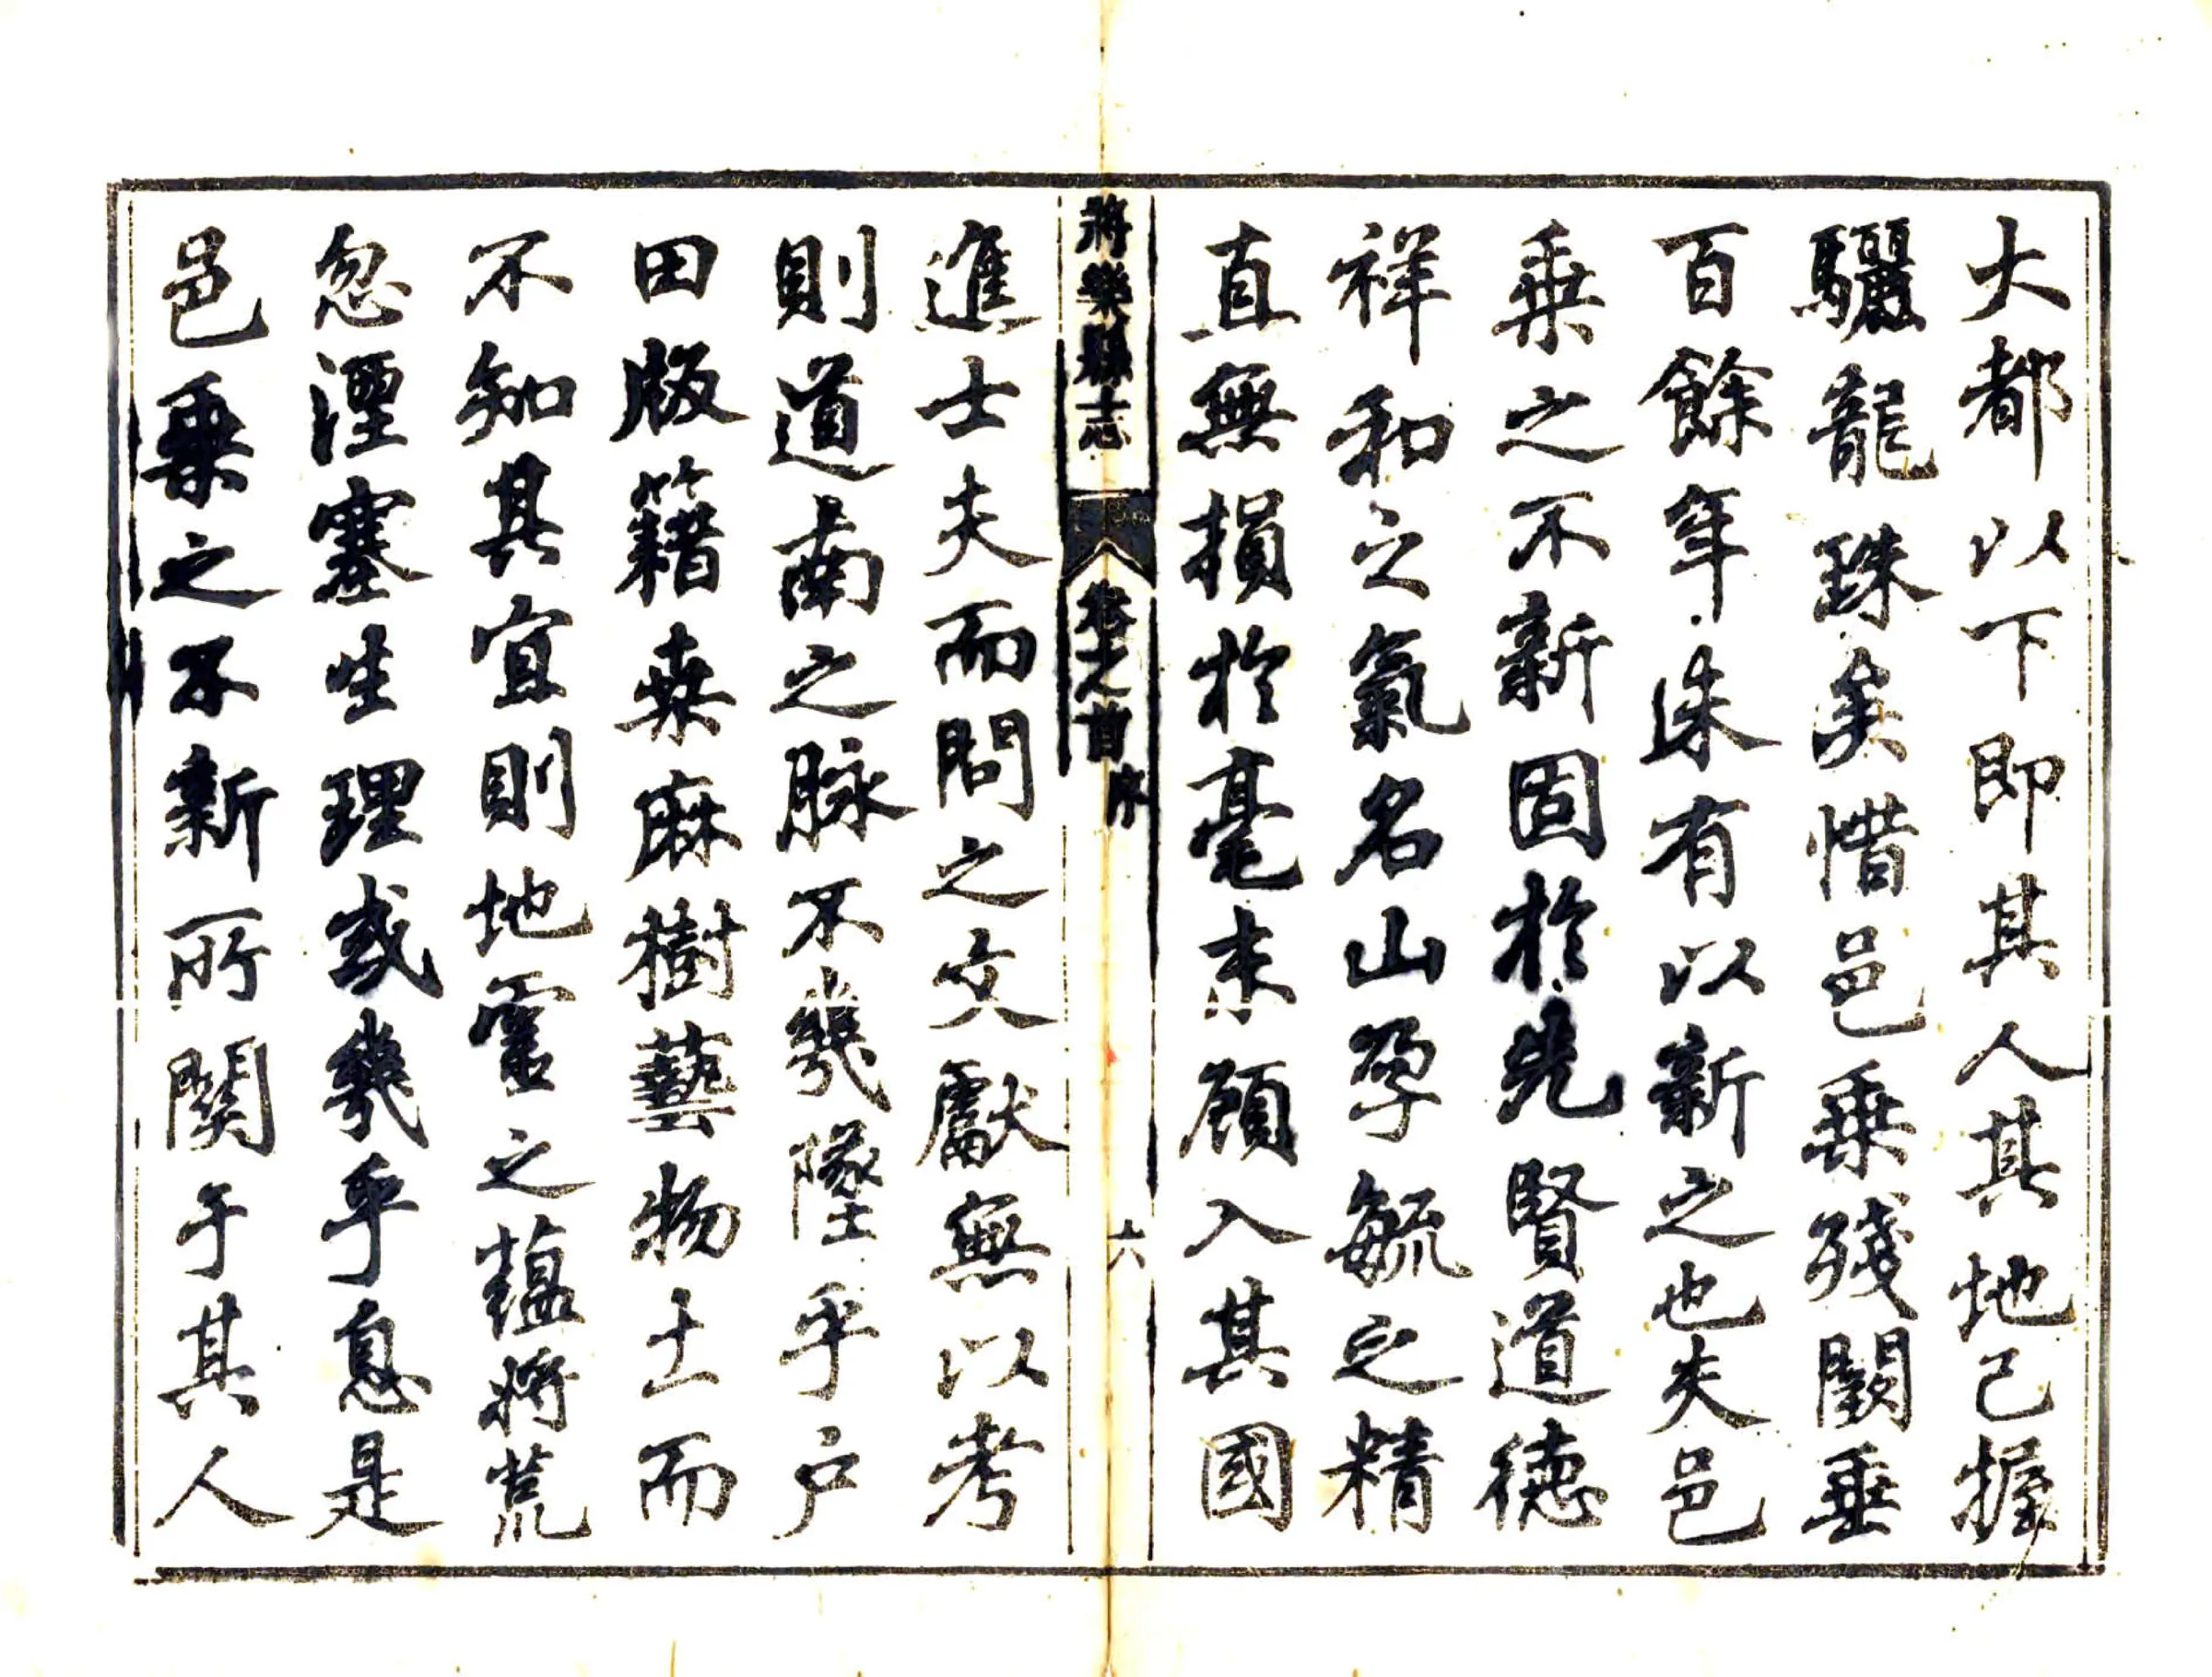 大都以下即其人其地已握
驪龍珠矣惜邑乗殘闕垂
百餘年未有以新之也夫邑
乗之不新固於先賢道德
祥和之氣名山孕毓之精
直無損於毫末顧入其國
將樂縣志
卷之首
序
六
進士夫而問之文獻無以考
則道南之脉不幾墜乎户
田版籍桒麻樹藝物土而
不知其宜則地靈之蘊將荒
忽湮塞生理或幾乎息是
邑乗之不新所関于其人